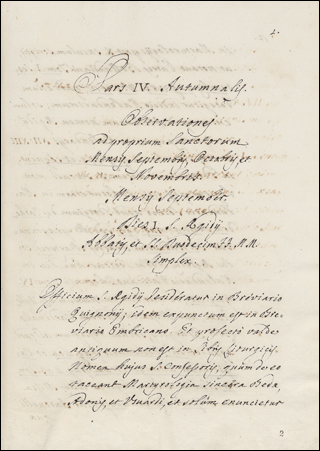 4
Pars IV. Autumnalis.
Observationes
ad proprium Sanctorum
Mensis Septembris, Octobris, et
Novembris.
Mensis September.
Dies I. S. Ægidij
Abbatis, et SS. Duodecim FF. M. M.
Simplex.
Officium S. Ægidij desideratur in Breviario
Quignonij, idem expunctum est in Bre-
viario Ambrosiano. Et profecto valde
antiquum non est in libris liturgicis.
Nomen hujus S. Confessoris, quum de eo
taceant Martyrologia sincera Bedæ,
Adonis, et Usuardi, et solum enuncietur